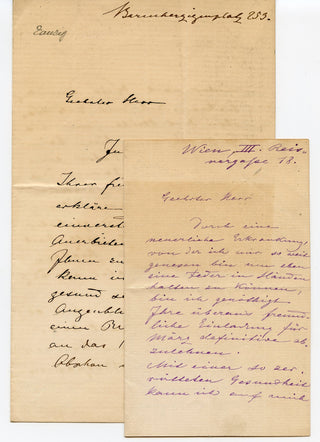 Barmherzigenplatz 253.
Geehrter Herr
Ju
Ihrer fre
erkläre
einverst
Anerbiete
Ihnen zu
kann in
gesund se
Augenbl
einen Br
an das
Abschon
Wien, III. Reis-
nergaße 18.
Geehrter Herr
Durch eine
neuerliche Erkrankung,
von der ich nur so weit
genesen bin um eben
eine Feder in Händen
halten zu können,
bin ich genöthigt
Ihre überaus freund-
liche Einladung für
März definitive ab-
zulehnen.
Mit einer so zer-
rütteten Gesundheit
kann ich auf mich